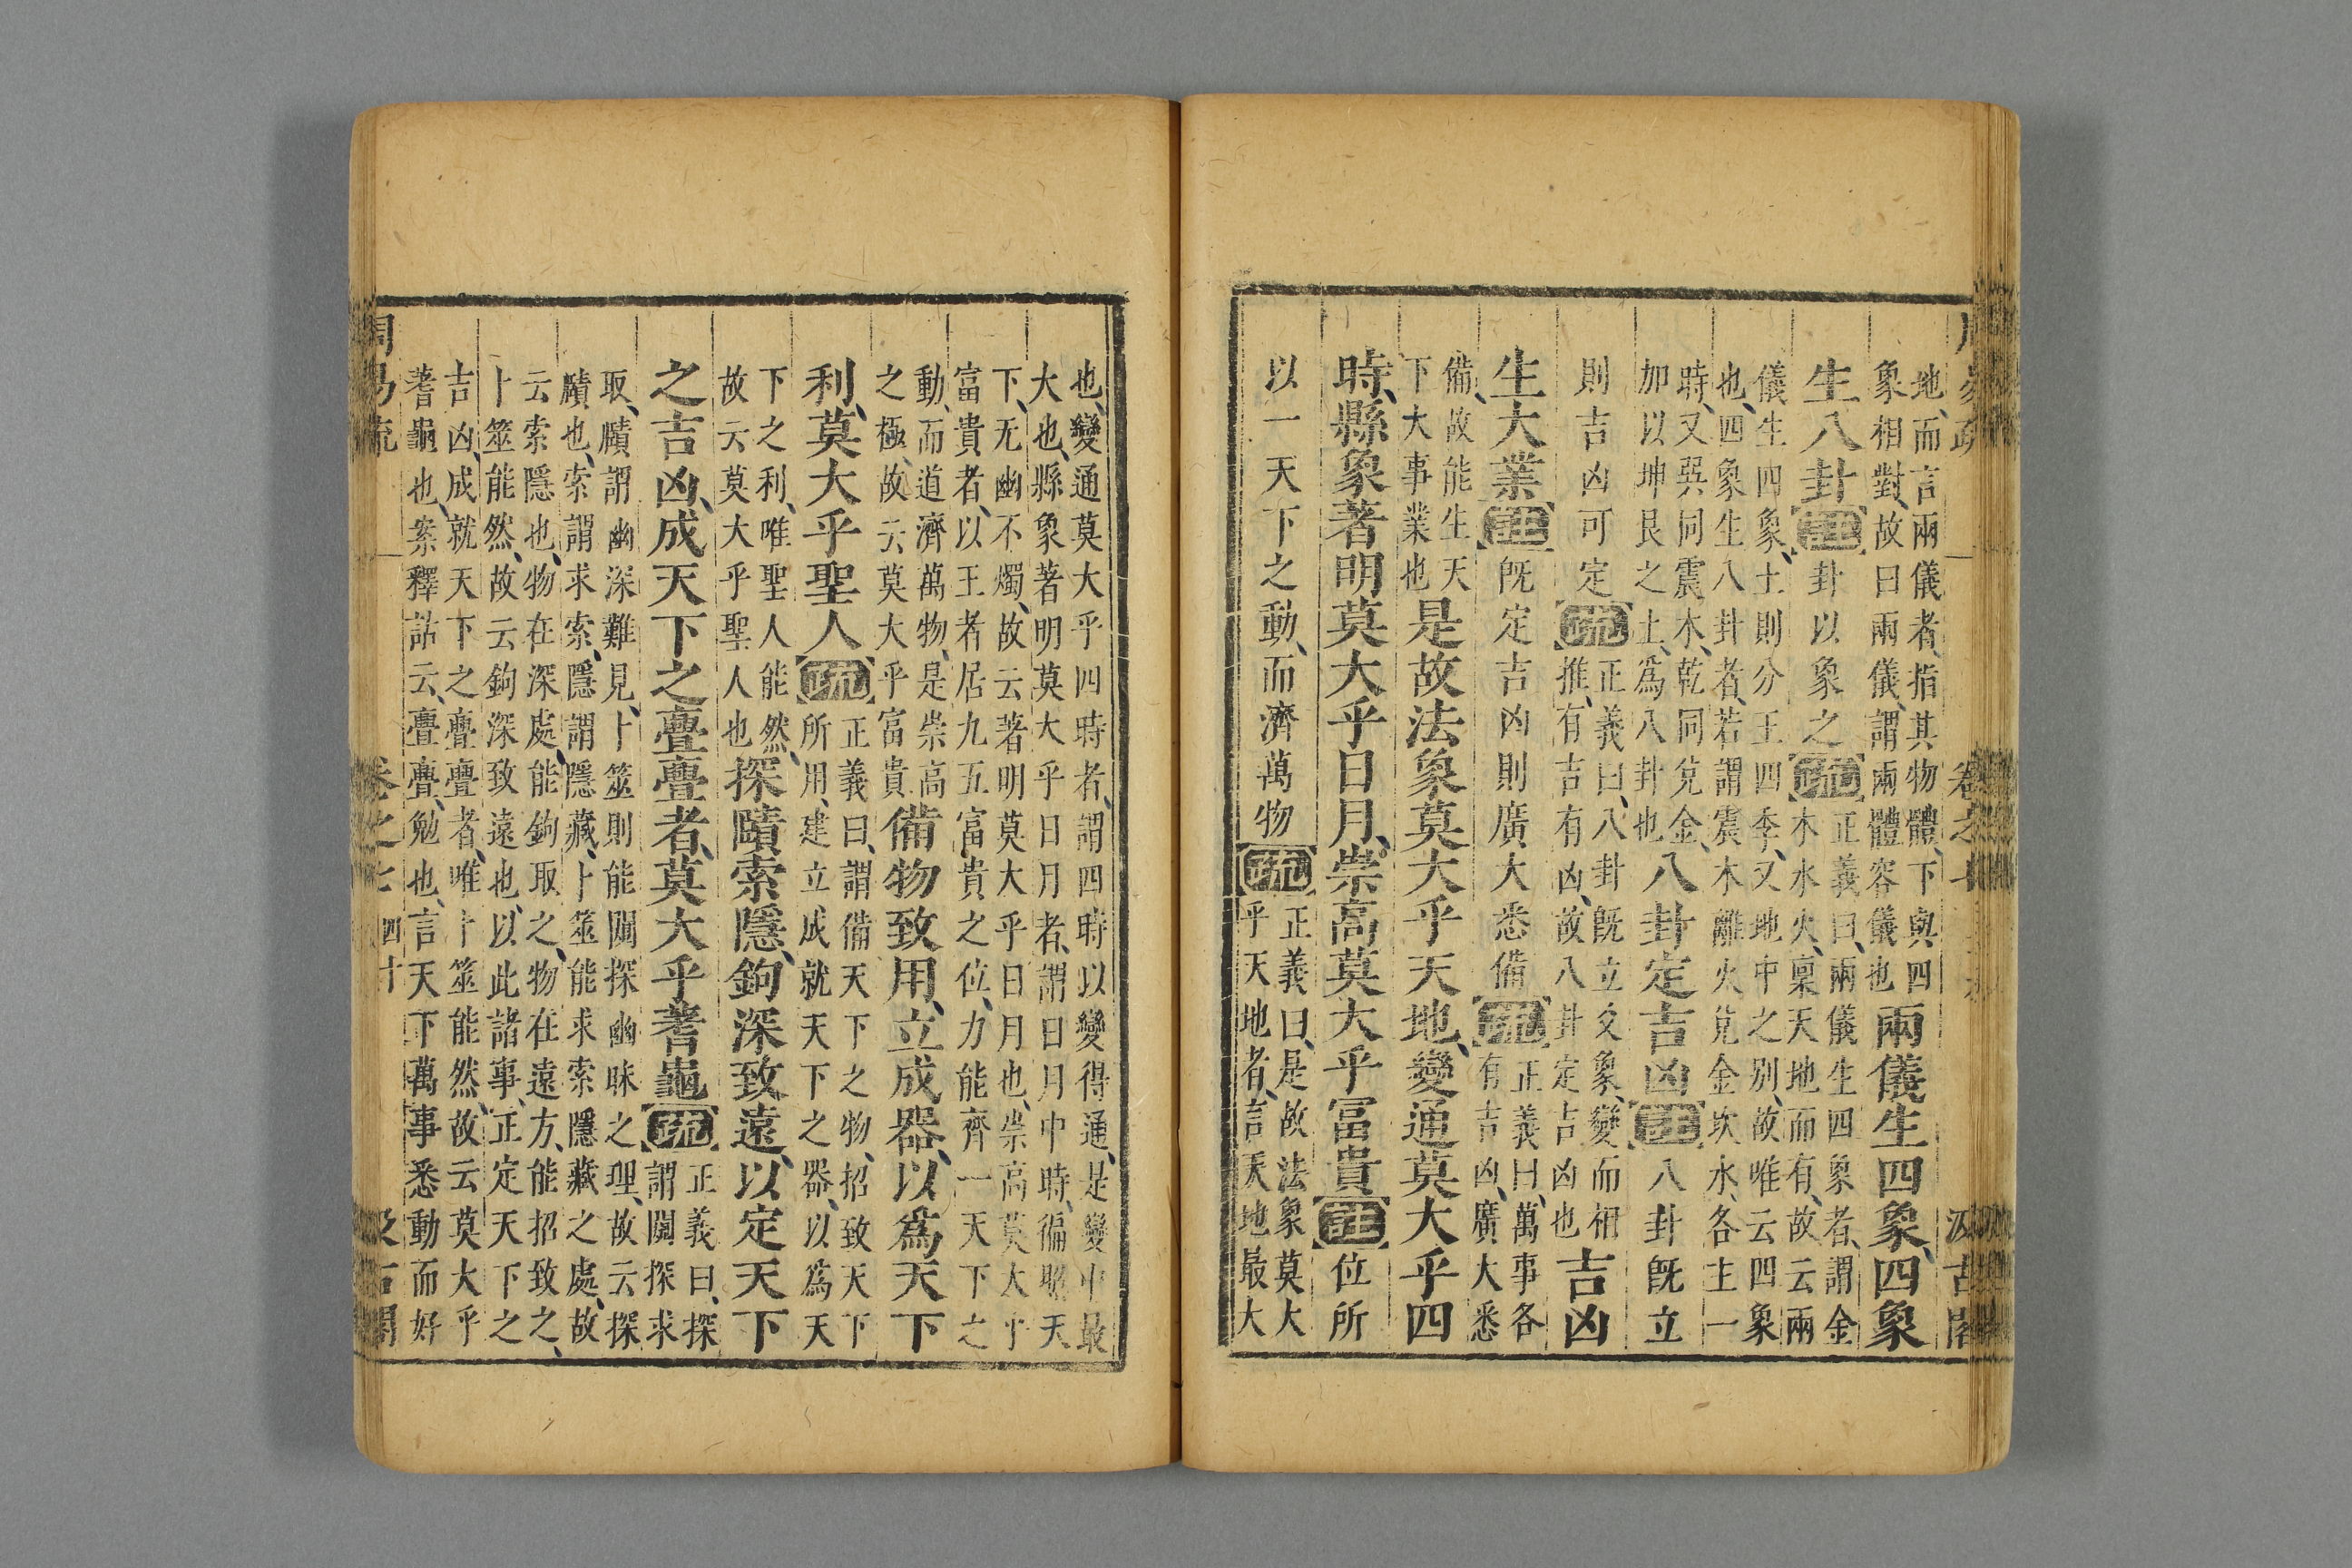 地、而言兩儀者、指其物體、下與四
象相對、故曰兩儀、謂兩體容儀也
兩儀生四象、四象
生八卦
註
卦以象之
疏
正義曰、兩儀生四象者、謂金
木水火、稟天地而有、故云兩
儀生四象、土則分王四季、又地中之別、故唯云四象
也、四象生八卦者、若謂震木離火兌金坎水、各主一
時、又巽同震木、乾同兌金、
加以坤艮之土、爲八卦也
八卦定吉凶
註
八卦旣立
則吉凶可定
疏
正義曰、八卦旣立爻象、變而相
推、有吉有凶、故八卦定吉凶也
吉凶
生大業
註
旣定吉凶則廣大悉備
疏
正義曰、萬事各
有吉凶、廣大悉
備、故能生天
下大事業也
是故法象莫大乎天地、變通莫大乎四
時、縣象著明莫大乎日月、崇高莫大乎冨貴
註
位所
以一天下之動、而濟萬物
疏
正義曰、是故法象莫大
乎天地者、言天地最大
也、變通莫大乎四時者、謂四時以變得通、是變中最
大也、縣象著明莫大乎日月者、謂日月中時、徧照天
下、无幽不燭、故云著明莫大乎日月也、崇高莫大乎
富貴者、以王者居九五富貴之位、力能齊一天下之
動、而道濟萬物、是崇高
之極、故云莫大乎富貴
備物致用、立成器、以爲天下
利、莫大乎聖人
疏
正義曰、謂備天下之物、招致天下
所用、建立成就天下之器、以爲天
下之利、唯聖人能然、
故云莫大乎聖人也
探賾索隱、鉤深致遠、以定天下
之吉凶、成天下之亹亹者、莫大乎蓍龜
疏
正義曰、探
謂闚探求
取、賾謂幽深難見、卜筮則能闚探幽昧之理、故云探
賾也、索謂求索、隱謂隱藏、卜筮能求索隱藏之處、故
云索隱也、物在深處、能鉤取之、物在遠方、能招致之、
卜筮能然、故云鉤深致遠也、以此諸事、正定天下之
吉凶、成就天下之亹亹者、唯卜筮能然、故云莫大乎
蓍龜也、案釋詁云、亹亹、勉也、言天下萬事悉動而好
周易疏 卷之七 四十 汲古閣